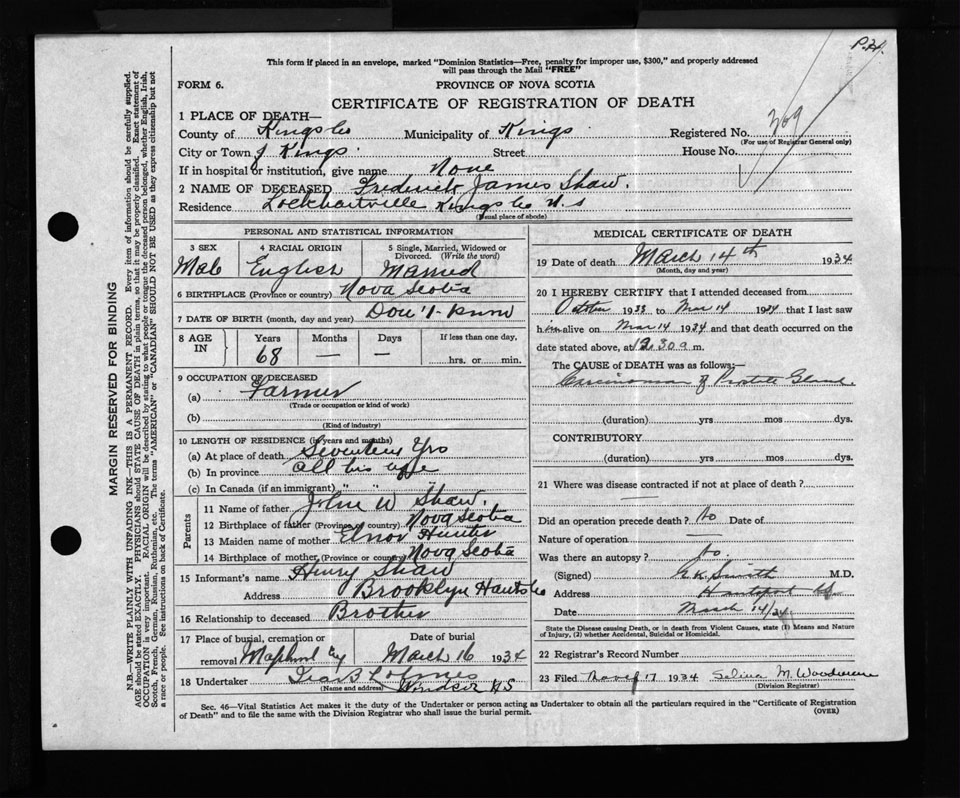 P.34.
This form if placed in an envelope, marked "Dominion Statistics—Free, penalty for improper use, $300," and properly addressed
will pass through the Mail "FREE"
FORM 6.
PROVINCE OF NOVA SCOTIA
CERTIFICATE OF REGISTRATION OF DEATH
MARGIN RESERVED FOR BINDING
N.B.—WRITE PLAINLY WITH UNFADING INK—THIS IS A PERMANENT RECORD. Every item of information should be carefully supplied.
AGE should be stated EXACTLY. PHYSICIANS should STATE CAUSE OF DEATH in plain terms, so that it may be properly classified. Exact statement of
OCCUPATION is very important. RACIAL ORIGIN will be described by stating to what people or tongue the deceased person belonged, whether English, Irish,
Scotch, French, German, Russian, Ruthenian, etc. The terms "AMERICAN" or "CANADIAN" SHOULD NOT BE USED as they express citizenship but not
a race or people. See instructions on back of Certificate.
1 PLACE OF DEATH—
County of Kings Co Municipality of Kings Registered No. 369
(For use of Registrar General only)
City or Town of Kings. Street House No.
If in hospital or institution, give name None
2 NAME OF DECEASED Frederick James Shaw.
Residence Lockhartville Kings Co N.S
(Usual place of abode)
PERSONAL AND STATISTICAL INFORMATION
3 SEX 4 RACIAL ORIGIN 5 Single, Married, Widowed or
Divorced. (Write the word)
Male English Married
6 BIRTHPLACE (Province or country) Nova Scotia
7 DATE OF BIRTH (month, day and year) Don't know
8 AGE IN Years Months Days If less than one day,
68 — — hrs. or min.
9 OCCUPATION OF DECEASED
(a) Farmer
(Trade or occupation or kind of work)
(b)
(Kind of industry)
10 LENGTH OF RESIDENCE (in years and months)
(a) At place of death Seventeen Yrs
(b) In province all his life
(c) In Canada (if an immigrant) " " "
Parents
11 Name of father John W Shaw.
12 Birthplace of father (Province or country) Nova Scotia
13 Maiden name of mother Elnor Hunter
14 Birthplace of mother (Province or country) Nova Scotia
15 Informant's name Henry Shaw
Address Brooklyn Hants Co
16 Relationship to deceased Brother
17 Place of burial, cremation or Date of burial
removal March 16 1934
18 Undertaker
(Name and address) Windsor NS
MEDICAL CERTIFICATE OF DEATH
19 Date of death March 14th 1934
(Month, day and year)
20 I HEREBY CERTIFY that I attended deceased from
October 1933 to Mar 14 1934 that I last saw
him alive on Mar 14 1934 and that death occurred on the
date stated above, at 12.30 a m.
The CAUSE OF DEATH was as follows:—
Carcinoma of Prostate Gland
(duration) yrs mos dys.
CONTRIBUTORY
(duration) yrs mos dys.
21 Where was disease contracted if not at place of death?
—
Did an operation precede death? No Date of
Nature of operation —
Was there an autopsy? No.
(Signed) Smith M.D.
Address Hantsport N.S.
Date March 14/34
State the Disease causing Death, or in death from Violent Causes, state (1) Means and Nature
of Injury, (2) whether Accidental, Suicidal or Homicidal.
22 Registrar's Record Number
23 Filed 17 1934 Selina M.
(Division Registrar)
Sec. 46—Vital Statistics Act makes it the duty of the Undertaker or person acting as Undertaker to obtain all the particulars required in the "Certificate of Registration
of Death" and to file the same with the Division Registrar who shall issue the burial permit. (OVER)